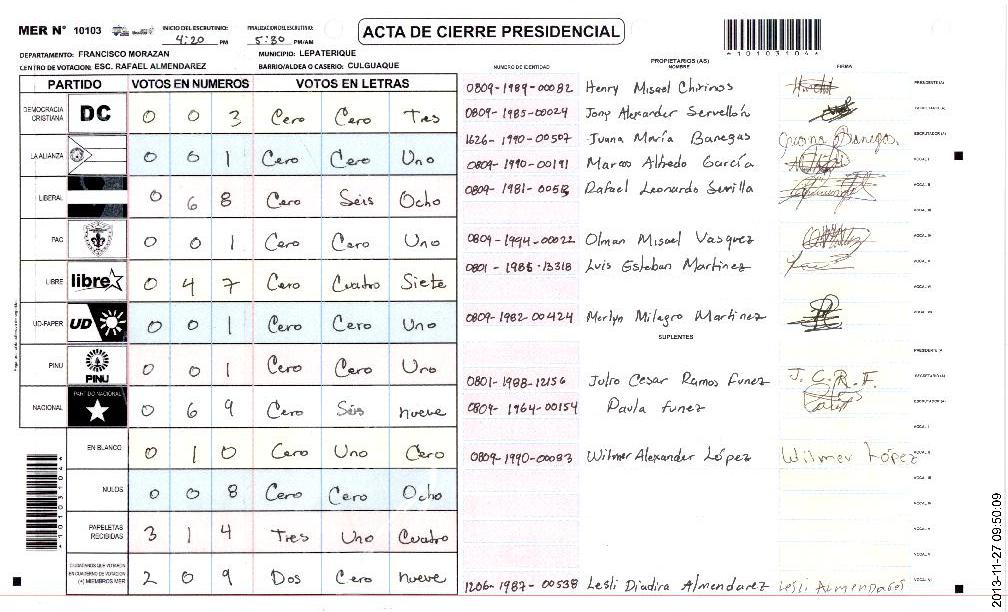 MER N° 10103 INICIO DEL ESCRUTINIO: 4:20 PM FINALIZACION DEL ESCRUTINIO: 5:30 PM/AM ACTA DE CIERRE PRESIDENCIAL
*10103104*
DEPARTAMENTO: FRANCISCO MORAZAN MUNICIPIO: LEPATERIQUE
CENTRO DE VOTACION: ESC. RAFAEL ALMENDAREZ BARRIO/ALDEA O CASERIO: CULGUAQUE
PARTIDO VOTOS EN NUMEROS VOTOS EN LETRAS
DEMOCRACIA CRISTIANA DC 0 0 3 Cero Cero Tres
LA ALIANZA 0 0 1 Cero Cero Uno
LIBERAL 0 6 8 Cero Séis Ocho
PAC 0 0 1 Cero Cero Uno
LIBRE libre 0 4 7 Cero Cuatro Siete
UD-FAPER UD 0 0 1 Cero Cero Uno
PINU PINU 0 0 1 Cero Cero Uno
NACIONAL PARTIDO NACIONAL 0 6 9 Cero Séis nueve
EN BLANCO 0 1 0 Cero Uno Cero
NULOS 0 0 8 Cero Cero Ocho
PAPELETAS RECIBIDAS 3 1 4 Tres Uno Cuatro
CIUDADANOS QUE VOTARON EN CUADERNO DE VOTACION (+) MIEMBROS MER 2 0 9 Dos Cero nueve
*10103104*
PROPIETARIOS (AS)
NUMERO DE IDENTIDAD NOMBRE FIRMA
0809-1989-00082 Henry Misael Chirinos PRESIDENTE(A)
0809-1985-00024 Jony Alexander Servellón SECRETARIO(A)
1626-1990-00507 Juana María Banegas Juana Banegas ESCRUTADOR(A)
0809-1990-00191 Marco Albedo García VOCAL I
0809-1981- Rafael Leonardo Sevilla VOCAL II
VOCAL III
0809-1994-00022 Olman Misael Vasquez VOCAL IV
0801-1986-13318 Luis Esteban Martinez VOCAL V
VOCAL VI
0809-1982-00424 Merlyn Milagro Martinez VOCAL VII
SUPLENTES
PRESIDENTE(A)
0801-1988-12156 Julio Cesar Ramos Funez J. C. R. F. SECRETARIO(A)
0809-1964-00154 Paula funez ESCRUTADOR(A)
VOCAL I
0809-1990-00083 Wilmer Alexander López Wilmer López VOCAL II
VOCAL III
VOCAL IV
VOCAL V
1206-1987-00538 Lesli Diadira Almendarez Lesli Almendares VOCAL VI
2013-11-27 09:50:09